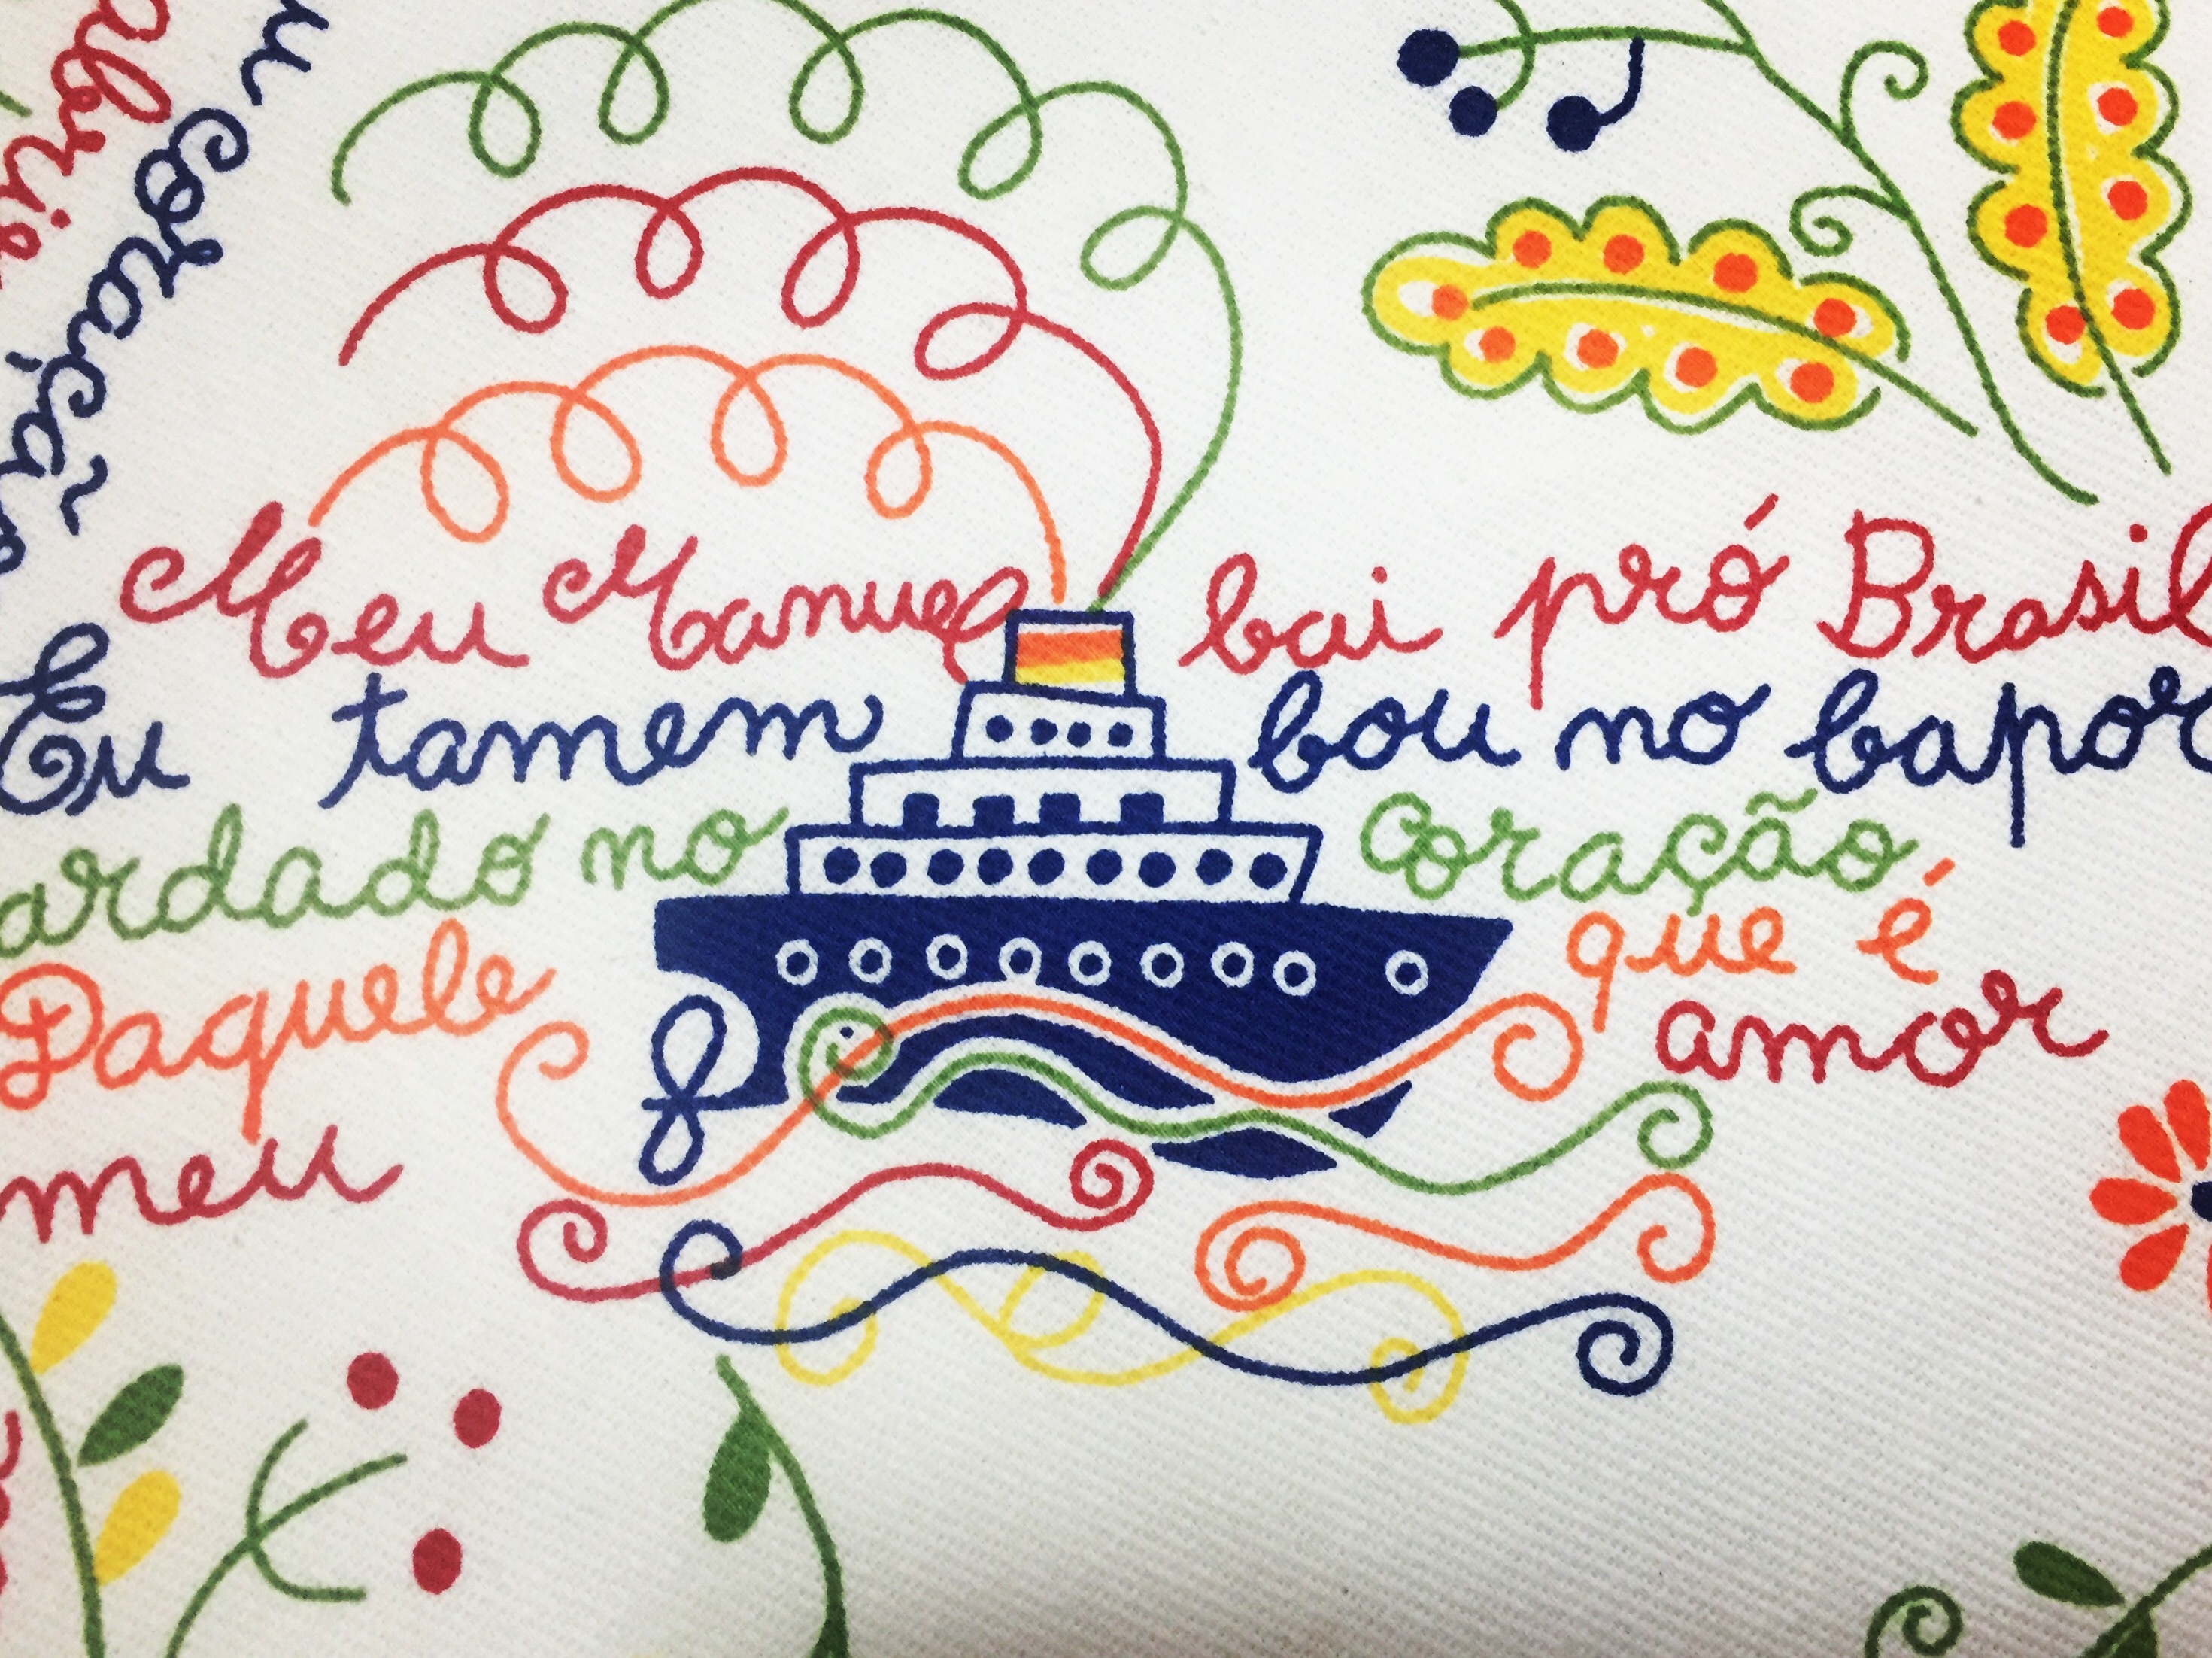 coração
Meu Manuel bai pró Brasil
Eu tamem bou no bapor
ardado no Coração
Daquele que é
meu amor